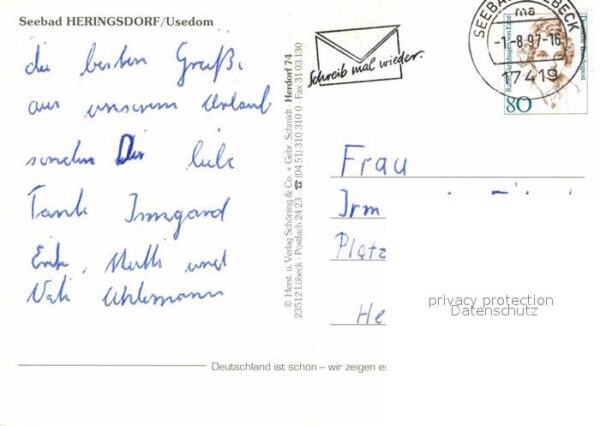 Seebad HERINGSDORF/Usedom
die besten Grüße
aus unserem Urlaub
senden Dir liebe
Tante Irmgard
und
© Herst. u. Verlag Schöning & Co. + Gebr. Schmidt · Herdorf 74
23512 Lübeck · Postfach 24 23 · ☎ (04 51) 310 310 0 · Fax 31 03 130
Schreib mal wieder.
SEEBAD
BECK
-1.-8.97-16
17419
Deutsche Bundespost
80
Frau
Irm
Platz
He
privacy protection
Datenschutz
Deutschland ist schön – wir zeigen es